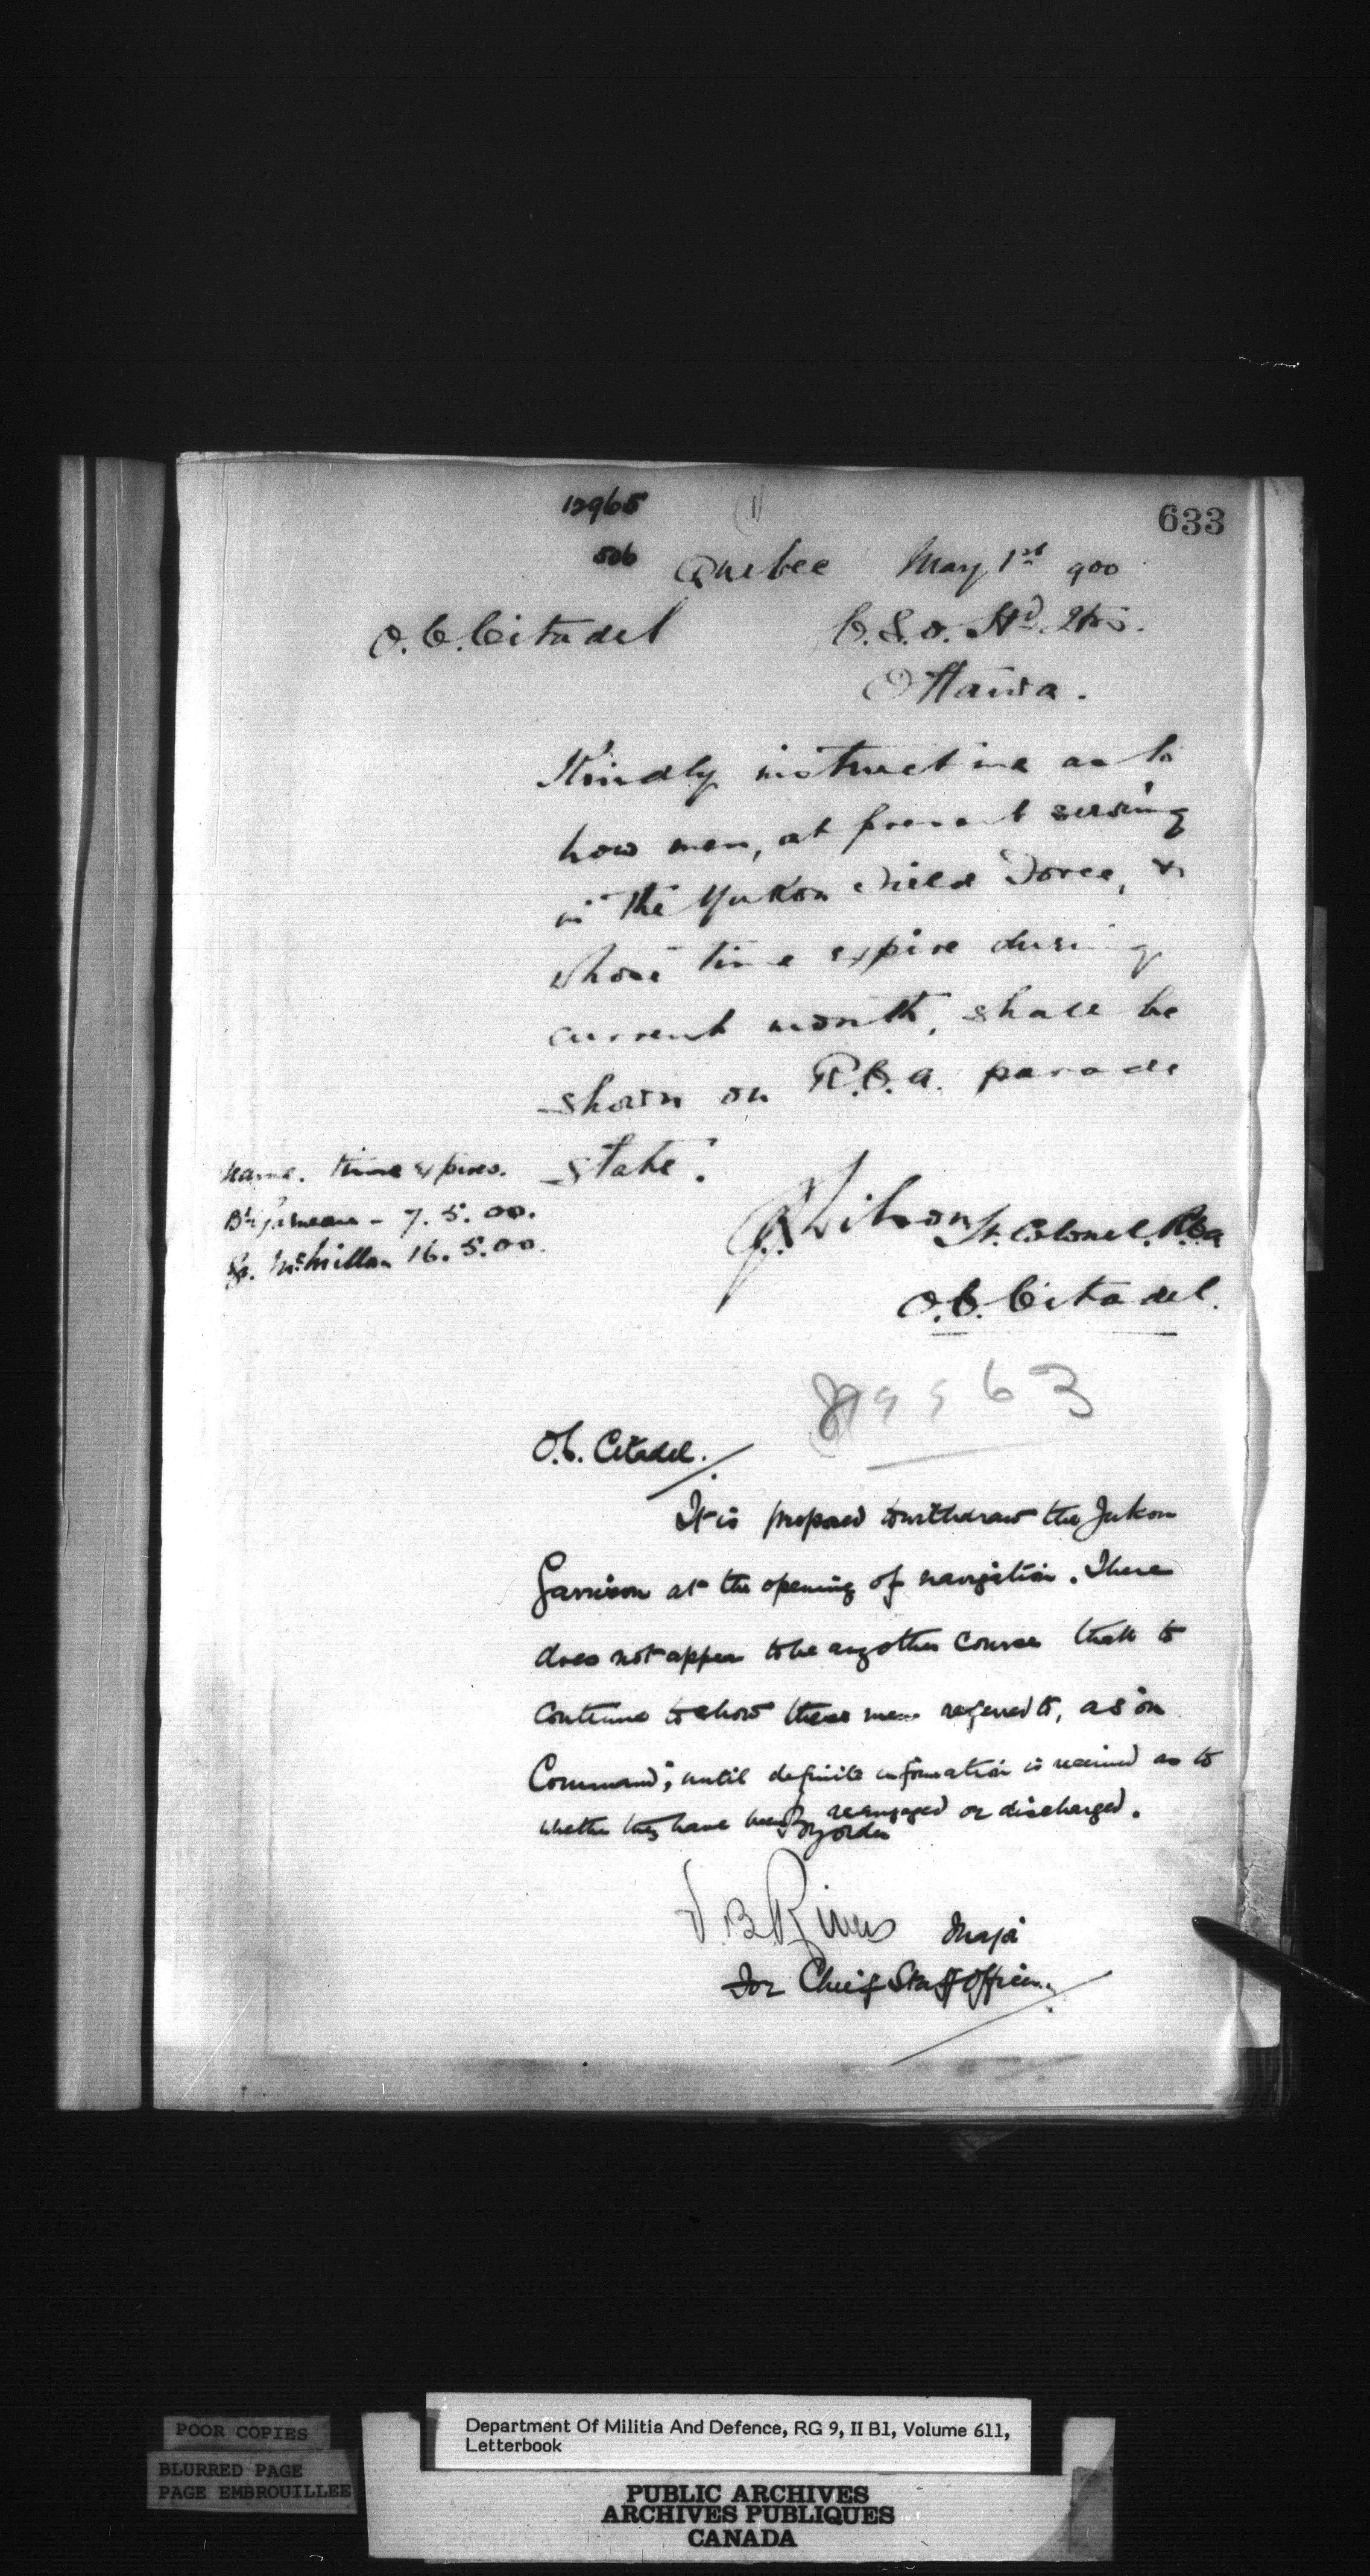 12965
(1)
633
506
Quebec May 1st 900
O.C. Citadel
C.S.O. Hd Qtrs.
Ottawa.
Kindly instruct me as to
how men, at present serving
in the Yukon Field Force, &
whose time expire during
current month, shall be
shown on R.C.A. parade
state.
Name. time expires.
Br Garneau - 7. 5. 00.
Gr. McMillan 16. 5. 00.
Wilson Lt. Colonel. RCA
O.C. Citadel.
63
O.C. Citadel.
It is proposed to withdraw the Yukon
Garrison at the opening of navigation. There
does not appear to be any other course than to
continue to show these men referred to, as "on
Command", until definite information is received as to
whether they have been reengaged or discharged.
By order
J.B. Rivers Major
For Chief Staff Officer.
POOR COPIES
BLURRED PAGE
PAGE EMBROUILLEE
Department Of Militia And Defence, RG 9, II B1, Volume 611,
Letterbook
PUBLIC ARCHIVES
ARCHIVES PUBLIQUES
CANADA